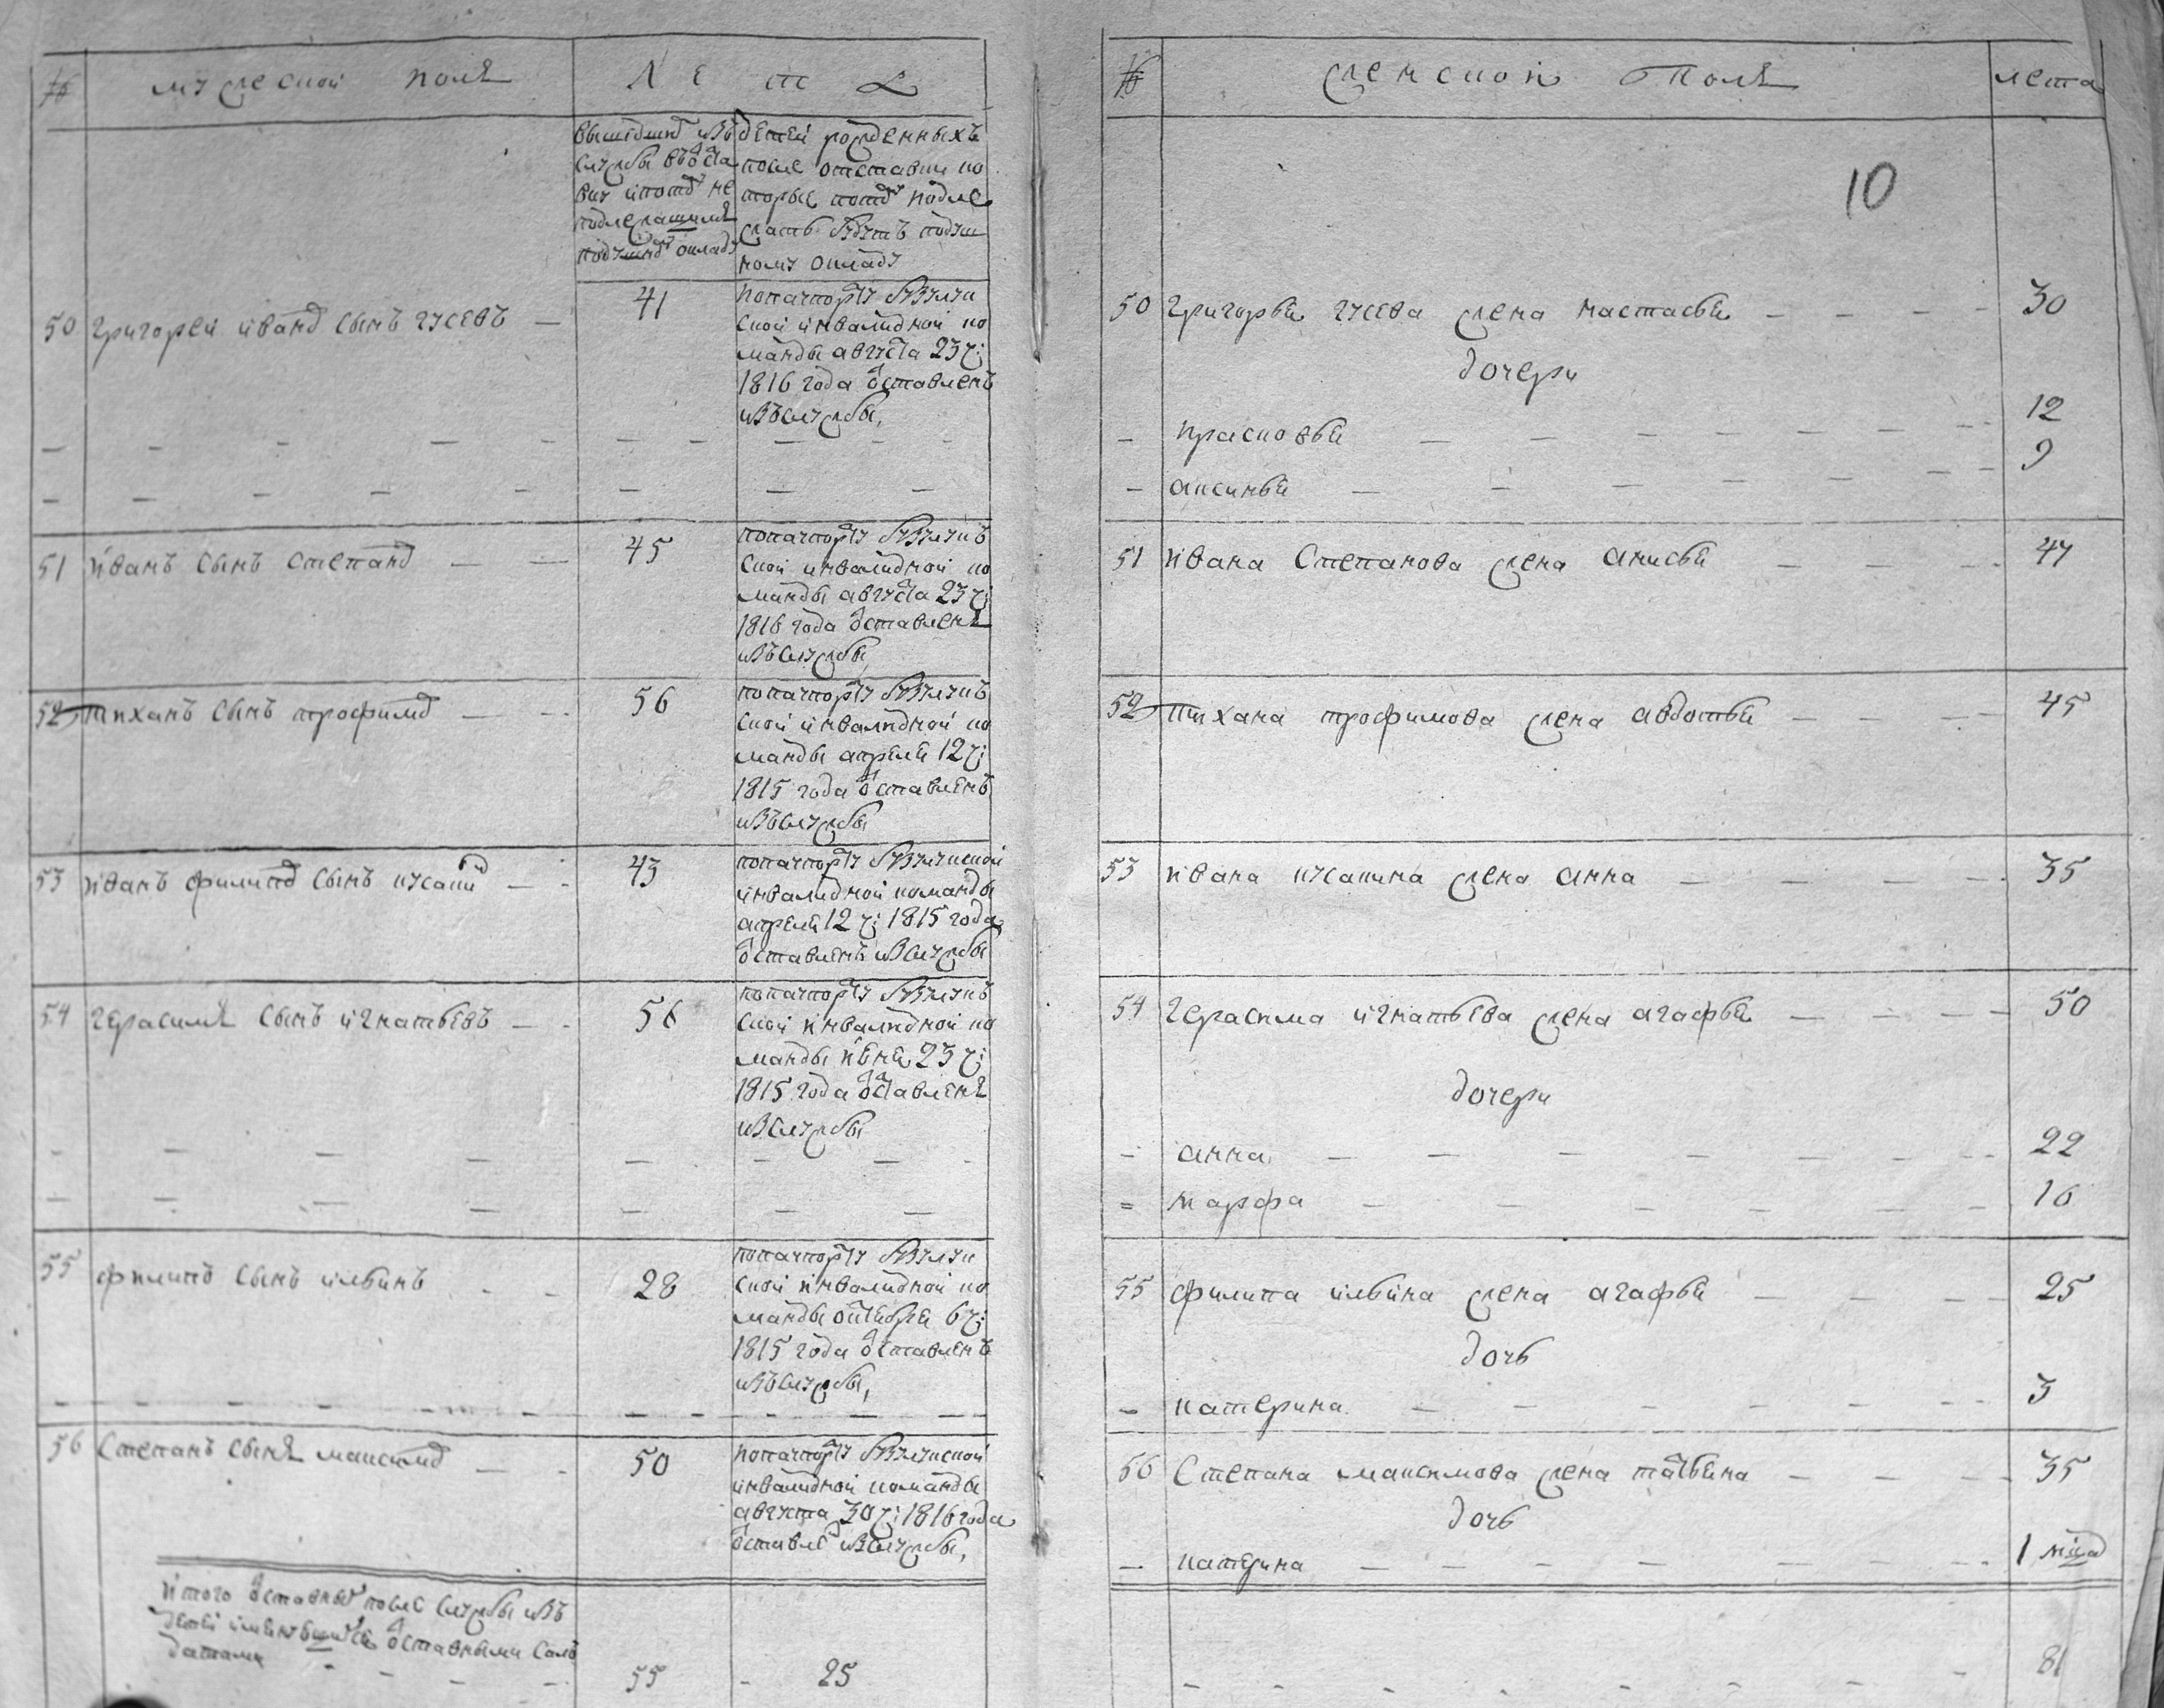 № мужескои полъ Л е т а
вышедшид изъ
службы въоста
вку ипотд не
подлежащимъ
подушнд окладу
детеи рожденныхъ
после отставки ко
торые потд подле
жать будутъ подуш
ному окладу
50 Григореи иванд сынъ гусевъ — 41
попачпорту Бузулук
скои инвалиднои ко
манды августа 23 ч:
1816 года оставленъ
изъслужбы,
51 иванъ сынъ степанд — — 45
попачпорту Бузулукъ
скои инвалиднои ко
манды августа 23 ч:
1816 года оставленъ
изъслужбы
52 тиханъ сынъ трофимд — — 56
попачпорту Бузулукъ
скои инвалиднои ко
манды апреля 12 ч:
1815 года оставленъ
изъслужбы
53 иванъ филипд сынъ кусакид — - 43
попачпорту Бузулукскои
инвалиднои команды
апреля 12 ч: 1815 года
оставленъ изслужбы
54 герасимъ сынъ игнатьевъ — - 56
попачпорту Бузулукъ
скои инвалиднои ко
манды июня 23 ч:
1815 года оставленъ
изслужбы
55 филипъ сынъ ильинъ - - 28
попачпорту Бузулук
скои инвалиднои ко
манды октебря 6 ч:
1815 года оставленъ
изъслужбы,
56 Степанъ сынъ максимд — - 50
попачпорту Бузулукскои
инвалиднои команды
августа 30 ч: 1816 года
оставле изслужбы,
итого оставныд после службы изъ
детеи оставными сол
датами
55 - 25
№ женскои Полъ лета
10
50 григорья гусева жена настасья — — — 30
дочери
— прасковья — — — 12
— аксинья — — — 9
51 ивана Степанова жена анисья — — — 47
52 тихана трофимова жена авдотья — — — 45
53 ивана кусакина жена анна — — — 35
54 герасима игнатьева жена агафья — — — 50
дочери
- анна — — — 22
= марфа — — — 16
55 филипа ильина жена агафья — — — 25
дочь
— катерина — — — 3
56 Степана максимова жена татьяна — — — 35
дочь
— катерина — — — 1 мцд
81